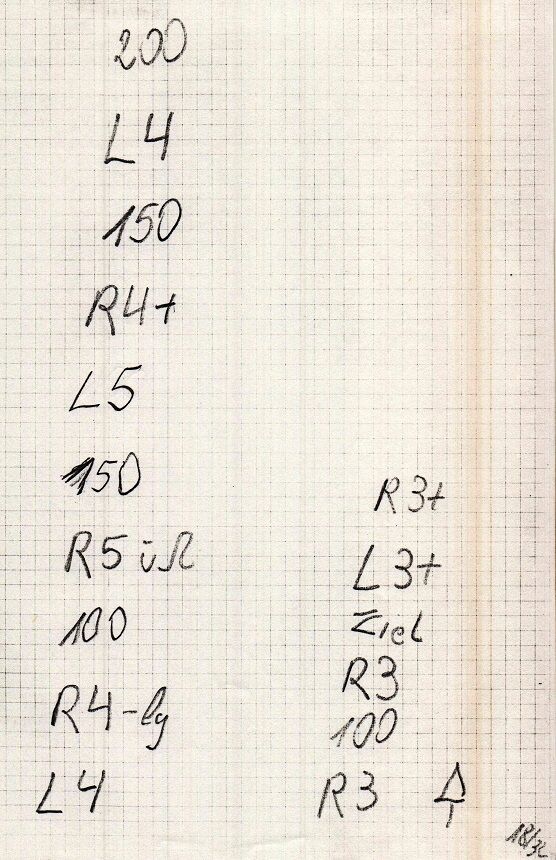 200
L4
150
R4+
L5
150
R5 ü
100
R4-lg
L4
R3+
L3+
Ziel
R3
100
R3